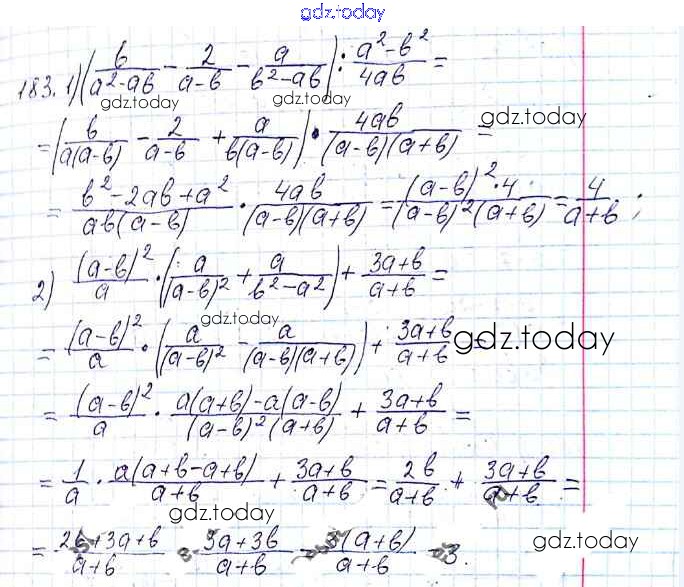 gdz.today
183. 1) (b/(a²-ab) - 2/(a-b) - a/(b²-ab)) : (a²-b²)/(4ab) =
gdz.today gdz.today gdz.today
= (b/(a(a-b)) - 2/(a-b) + a/(b(a-b))) • 4ab/((a-b)(a+b)) =
= (b²-2ab+a²)/(ab(a-b)) • 4ab/((a-b)(a+b)) = ((a-b)²•4)/((a-b)²(a+b)) = 4/(a+b);
2) (a-b)²/a • (a/(a-b)² + a/(b²-a²)) + (3a+b)/(a+b) =
gdz.today
= (a-b)²/a • (a/(a-b)² - a/((a-b)(a+b))) + (3a+b)/(a+b) =
gdz.today
= (a-b)²/a • (a(a+b)-a(a-b))/((a-b)²(a+b)) + (3a+b)/(a+b) =
= 1/a • a(a+b-a+b)/(a+b) + (3a+b)/(a+b) = 2b/(a+b) + (3a+b)/(a+b) =
gdz.today
= (2b+3a+b)/(a+b) = (3a+3b)/(a+b) = 3(a+b)/(a+b) = 3.
gdz.today